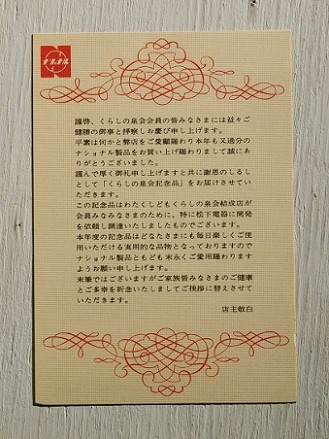 ナショナル
謹啓、くらしの泉会会員の皆みなさまには益々ご
健勝の御事と拝察しお慶び申し上げます。
平素は何かと弊店をご愛顧賜わり本年も又過分の
ナショナル製品をお買い上げ賜わりまして誠にあ
りがとうございました。
謹んで厚く御礼申し上げますと共に謝恩のしるし
として「くらしの泉会記念品」をお届けさせてい
ただきます。
この記念品はわたくしどもくらしの泉会結成店が
会員みなみなさまのために、特に松下電器に開発
を依頼し調達いたしましたものでございます。
本年度の記念品はどなたさまにも毎日楽しくご使
用いただける実用的な品物となっておりますので
ナショナル製品ともども末永くご愛用賜わります
ようお願い申し上げます。
末筆ではございますがご家族皆みなさまのご健康
とご多幸を祈念いたしましてご挨拶に替えさせて
いただきます。
店主敬白